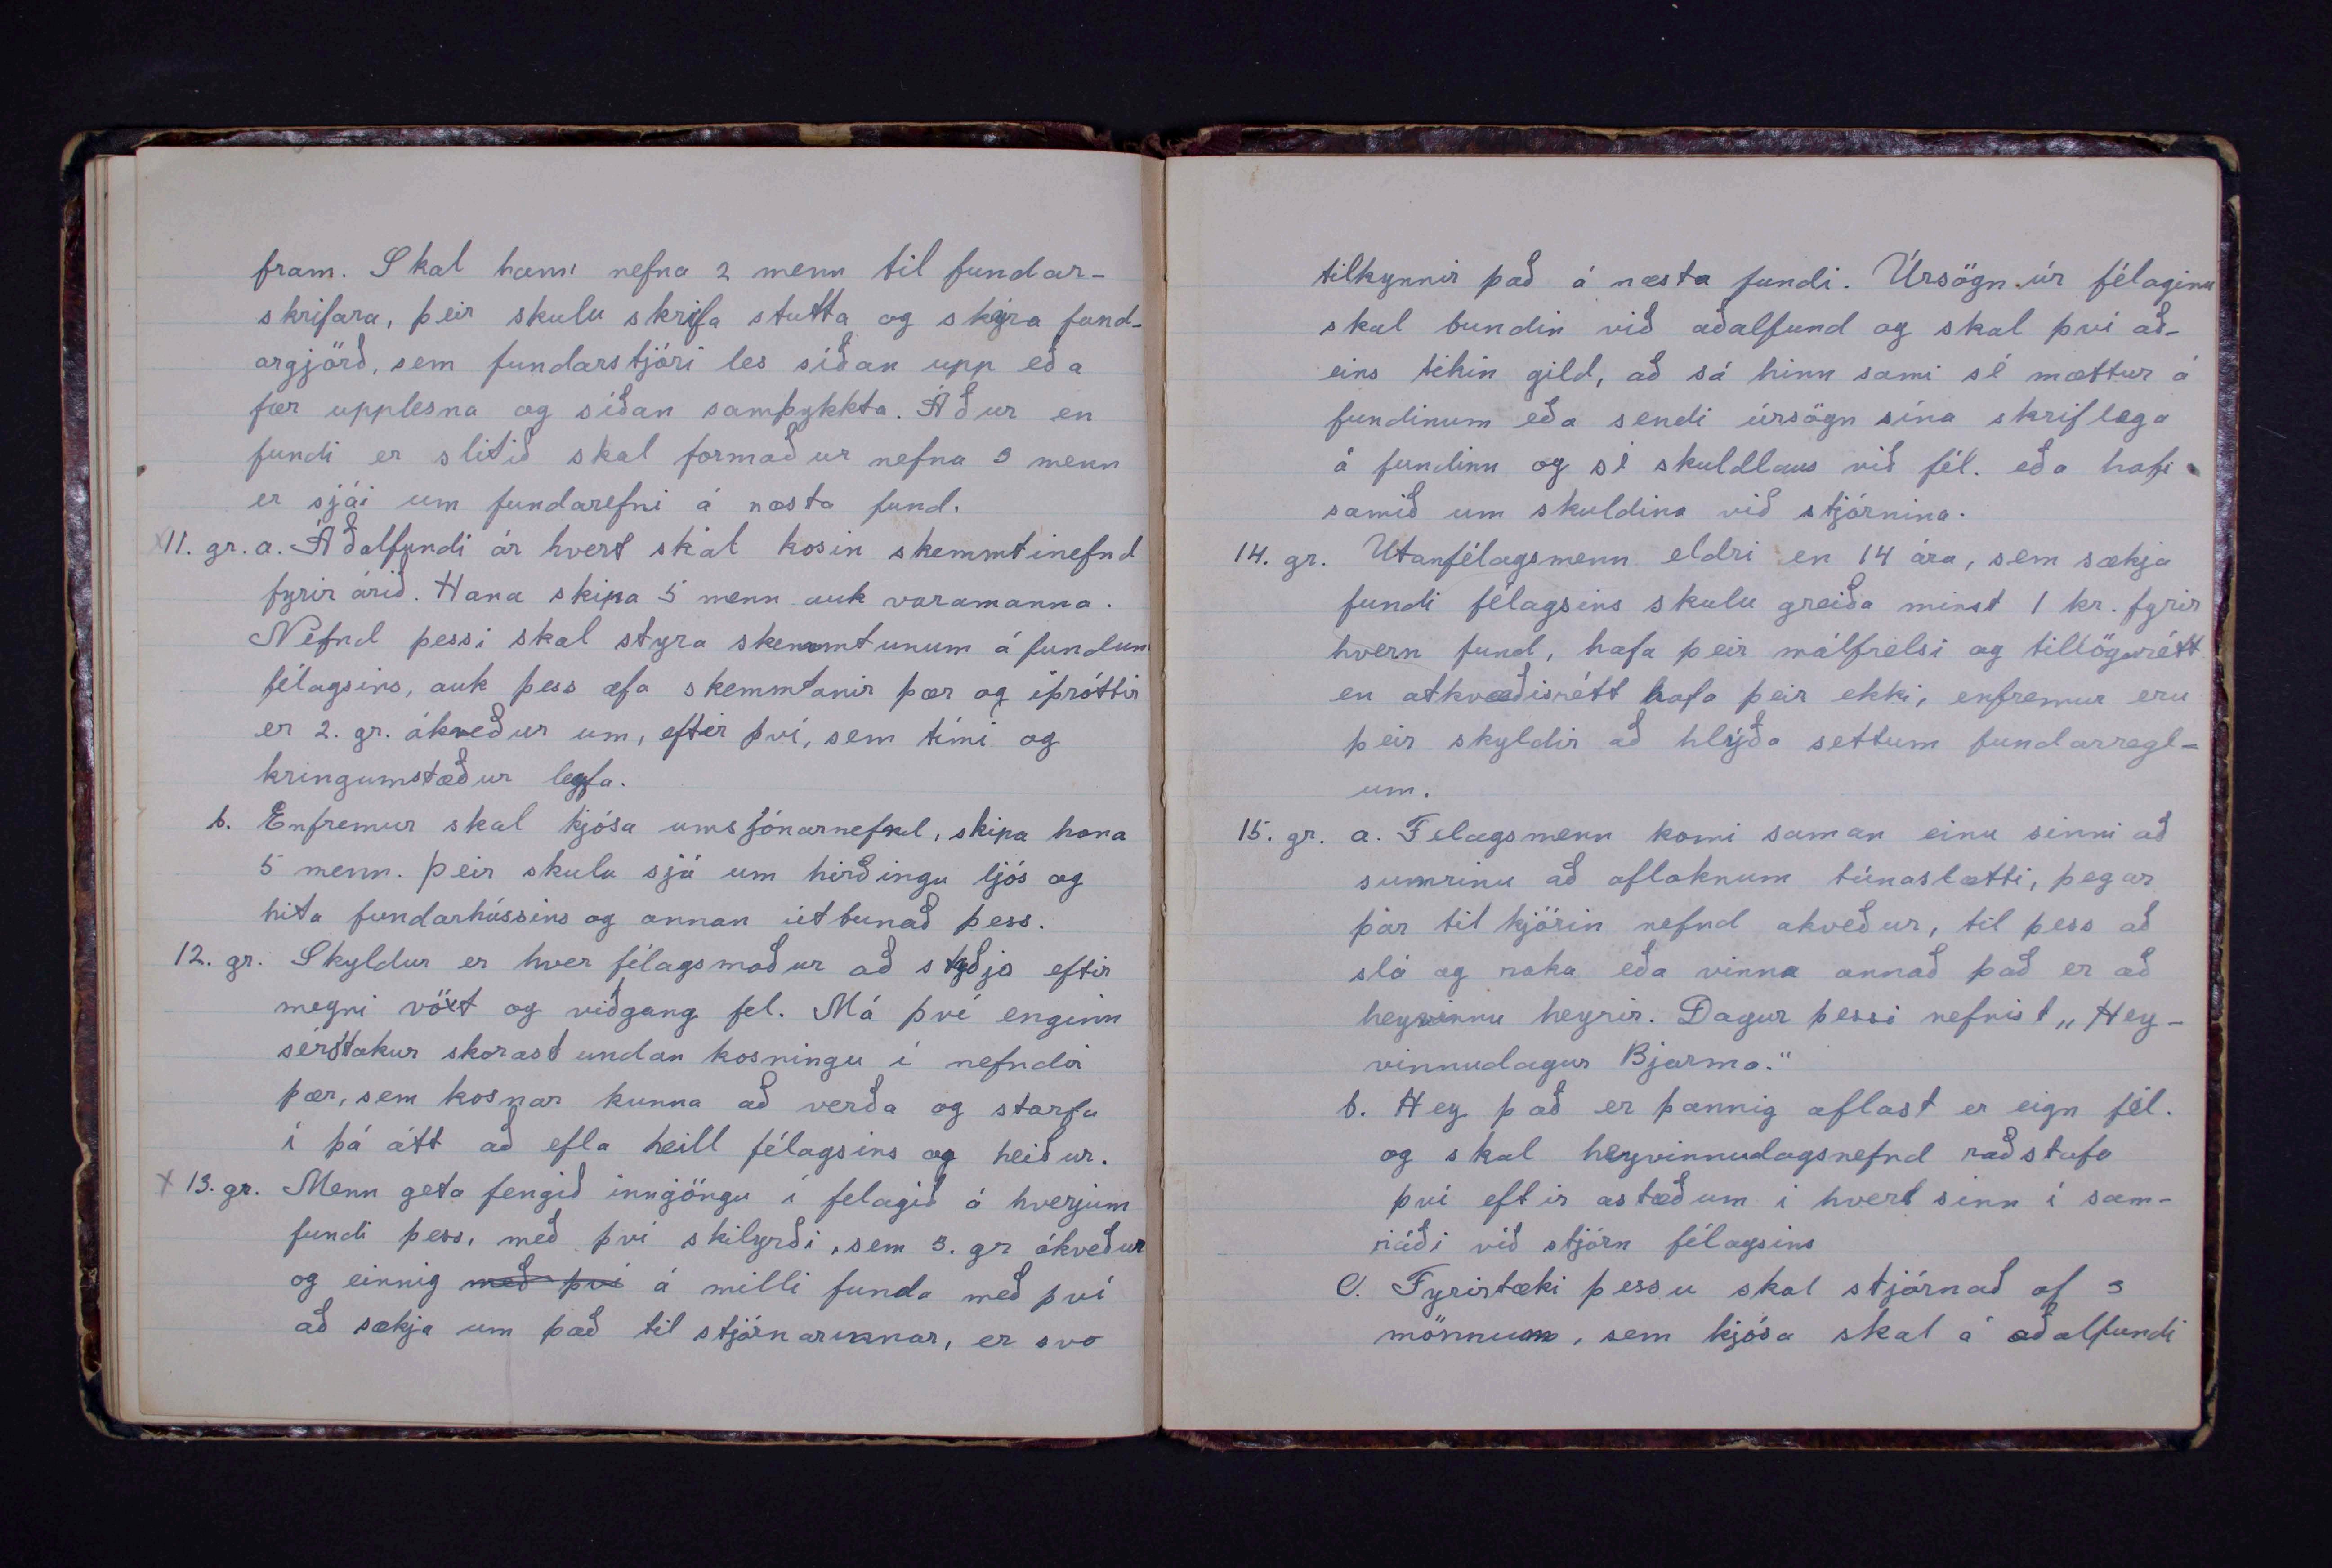 fram. Skal hann nefna 2 menn til fundar-
skrifara, þeir skulu skrifa stutta og skýra fund-
argjörð, sem fundarstjóri les síðan upp eða
fær upplesna og síðan samþykkta. Áður en
fundi er slitið skal formaður nefna 3 menn
er sjái um fundarefni á næsta fund.
x 11. gr. a. Á ðalfundi ár hvert skal kosin skemmtinefnd
fyrir árið. Hana skipa 5 menn auk varamanna.
Nefnd þessi skal styra skemmtunum á fundum
félagsins, auk þess æfa skemmtanir þær og íþróttir
er 2. gr. ákveður um, eftir því, sem tími og
kringumstæður leyfa.
b. Enfremur skal kjósa umsjónarnefnd, skipa hana
5 menn. Þeir skulu sjá um hirðingu ljós og
hita fundarhússins og annan útbunað þess.
12. gr. Skyldur er hver félagsmaður að styðja eftir
megni vöxt og viðgang fel. Má því enginn
sérstakur skorast undan kosningu í nefndir
þær, sem kosnar kunna að verða og starfa
í þá átt að efla heill félagsins og heiður.
x 13. gr. Menn geta fengið inngöngu í felagið á hverjum
fundi þess, með því skilyrði, sem 3. gr ákveður
og einnig með því á milli funda með því
að sækja um það til stjórnarinnar, er svo
tilkynnir það á næsta fundi. Úrsögn úr félaginu
skal bundin við aðalfund og skal því að-
eins tekin gild, að sá hinn sami sé mættur á
fundinum eða sendi úrsögn sína skriflega
á fundinn og sé skuldlaus við fél. eða hafi
samið um skuldina við stjórnina.
14. gr. Utanfélagsmenn eldri en 14 ára, sem sækja
fundi félagsins skulu greiða minst 1 kr. fyrir
hvern fund, hafa þeir málfrelsi og tillögurétt
en atkvæðisrétt hafa þeir ekki, enfremur eru
þeir skyldir að hlýða settum fundarregl-
um.
15. gr. a. Felagsmenn komi saman einu sinni að
sumrinu að afloknum túnaslætti, þegar
þar til kjörin nefnd akveður, til þess að
slá og raka eða vinna annað það er að
heyvinnu heyrir. Dagur þessi nefnist „Hey-
vinnudagur Bjarma."
b. Hey það er þannig aflast er eign fél.
og skal heyvinnudagsnefnd raðstafa
því eftir astæðum i hvert sinn í sam-
ráði við stjórn félagsins
C. Fyrirtæki þessu skal stjórnað af 3
mönnum, sem kjósa skal á aðalfundi